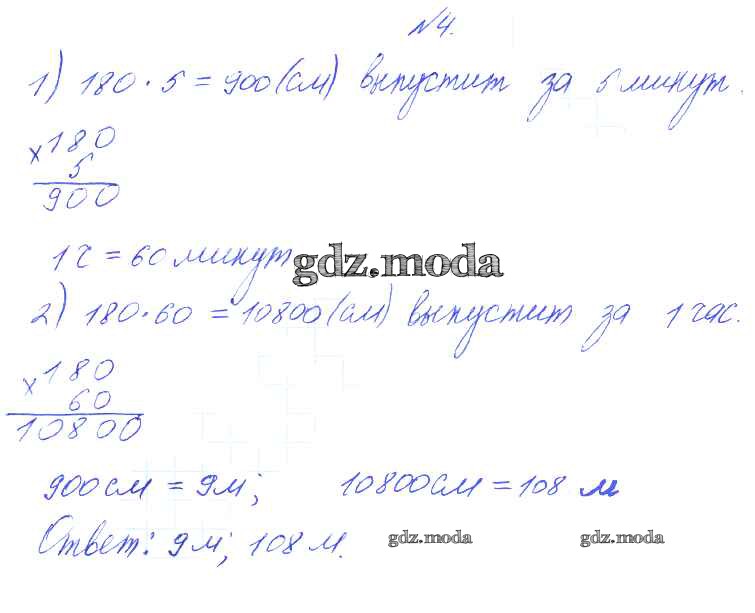 №4.
1) 180 · 5 = 900 (см) выпустит за 5 минут.
×180
5
900
1 ч = 60 минут
gdz.moda
2) 180 · 60 = 10800 (см) выпустит за 1 час.
×180
60
10800
900 см = 9 м; 10800 см = 108 м
Ответ: 9 м; 108 м.
gdz.moda gdz.moda